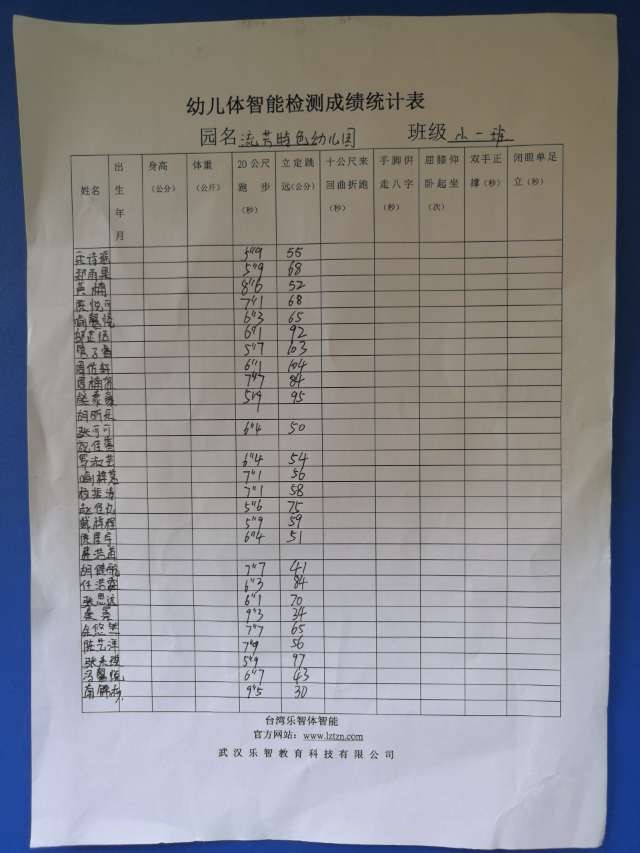 幼儿体智能检测成绩统计表
园名 流芳特色幼儿园 班级 小一班
姓名 出生年月 身高（公分） 体重（公斤） 20公尺跑步（秒） 立定跳远（公分） 十公尺来回曲折跑（秒） 手脚併走八字（秒） 屈膝仰卧起坐（次） 双手正撑（秒） 闭眼单足立（秒）
5"9 55
郑雨果 5"9 68
黄楠 8"6 52
陈悦可 7"1 68
喻馨悦 6"3 65
6"1 92
5"7 103
周佑轩 6"1 104
周楠 7"7 84
5"9 95
胡昕
张可可 6"4 50
祝佳
罗 6"4 54
喻梓 7"1 56
7"1 58
赵 5"6 75
戴梓程 5"9 59
6"4 51
胡 7"7 41
任洪 6"3 84
张思远 6"1 70
9"3 34
余悠然 7"7 65
陈艺洋 7"9 56
张天 5"9 97
冯馨悦 6"7 43
9"5 30
台湾乐智体智能
官方网站：www.lztzn.com
武汉乐智教育科技有限公司